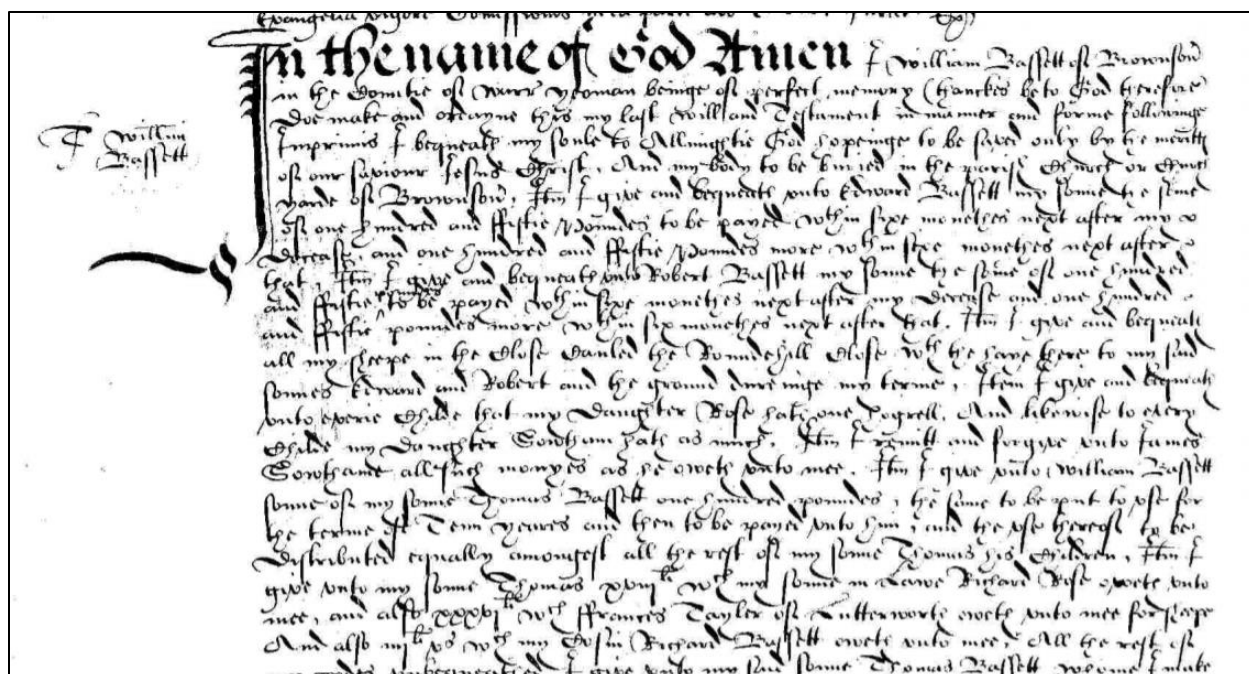 Evangelia vigore Comissionis
In the name of God Amen I William Bassett of Brownson
in the Comitie of Warr yeoman beinge of perfect memory (thanckes be to God therefore
Doe make and ordayne this my last will and Testament in manner and forme followinge
T William
Bassett
Imprimis I bequeath my soule to Allmightie God hopeinge to be saved only by the meritts
of our saviour Jesus Christ, And my body to be buried in the parish Church or Church
yarde of Brownson, Itm I give and bequeath unto Edward Bassett my sonne the some
of one hundred and ffiftie Poundes to be payed wthin sixe monethes next after my
decease, and one hundred and ffiftie Poundes more wthin sixe monethes next after
that, Itm I give and bequeath unto Robert Bassett my sonne the some of one hundred
and ffiftie poundes to be payed wthin sixe monethes next after my decease and one hundred
and ffiftie poundes more wthin six monethes next after that. Itm I give and bequeath
all my sheepe in the Close Caulled the Roundehill Close wth the haye there to my said
sonnes Edward and Robert and the ground dureinge my terme, Item I give and bequeath
unto everie Childe that my daughter Rose hath one hogrell. And likewise to every
Childe my daughter Sowtham hath as much. Itm I remitt and forgive unto James
Sowthame all such monyes as he oweth unto mee. Itm I give unto William Bassett
sonne of my sonne Thomas Bassett one hundred poundes, the same to be put to use for
the terme of Tenn yeares and then to be payed unto him, and the use thereof to be
distributed equally amongest all the rest of my sonne Thomas his Children, Itm I
give unto my sonne Thomas xxviii li wch my sonne in Lawe Richard Rose oweth unto
mee, and also xxxvi li wch ffrances Tayler of Lutterworth oweth unto mee for sheepe
And also iiij li vs wch my Cosin Richard Bassett oweth unto mee, All the rest of
unbequeathed I give unto my said sonne Thomas Bassett whome I make